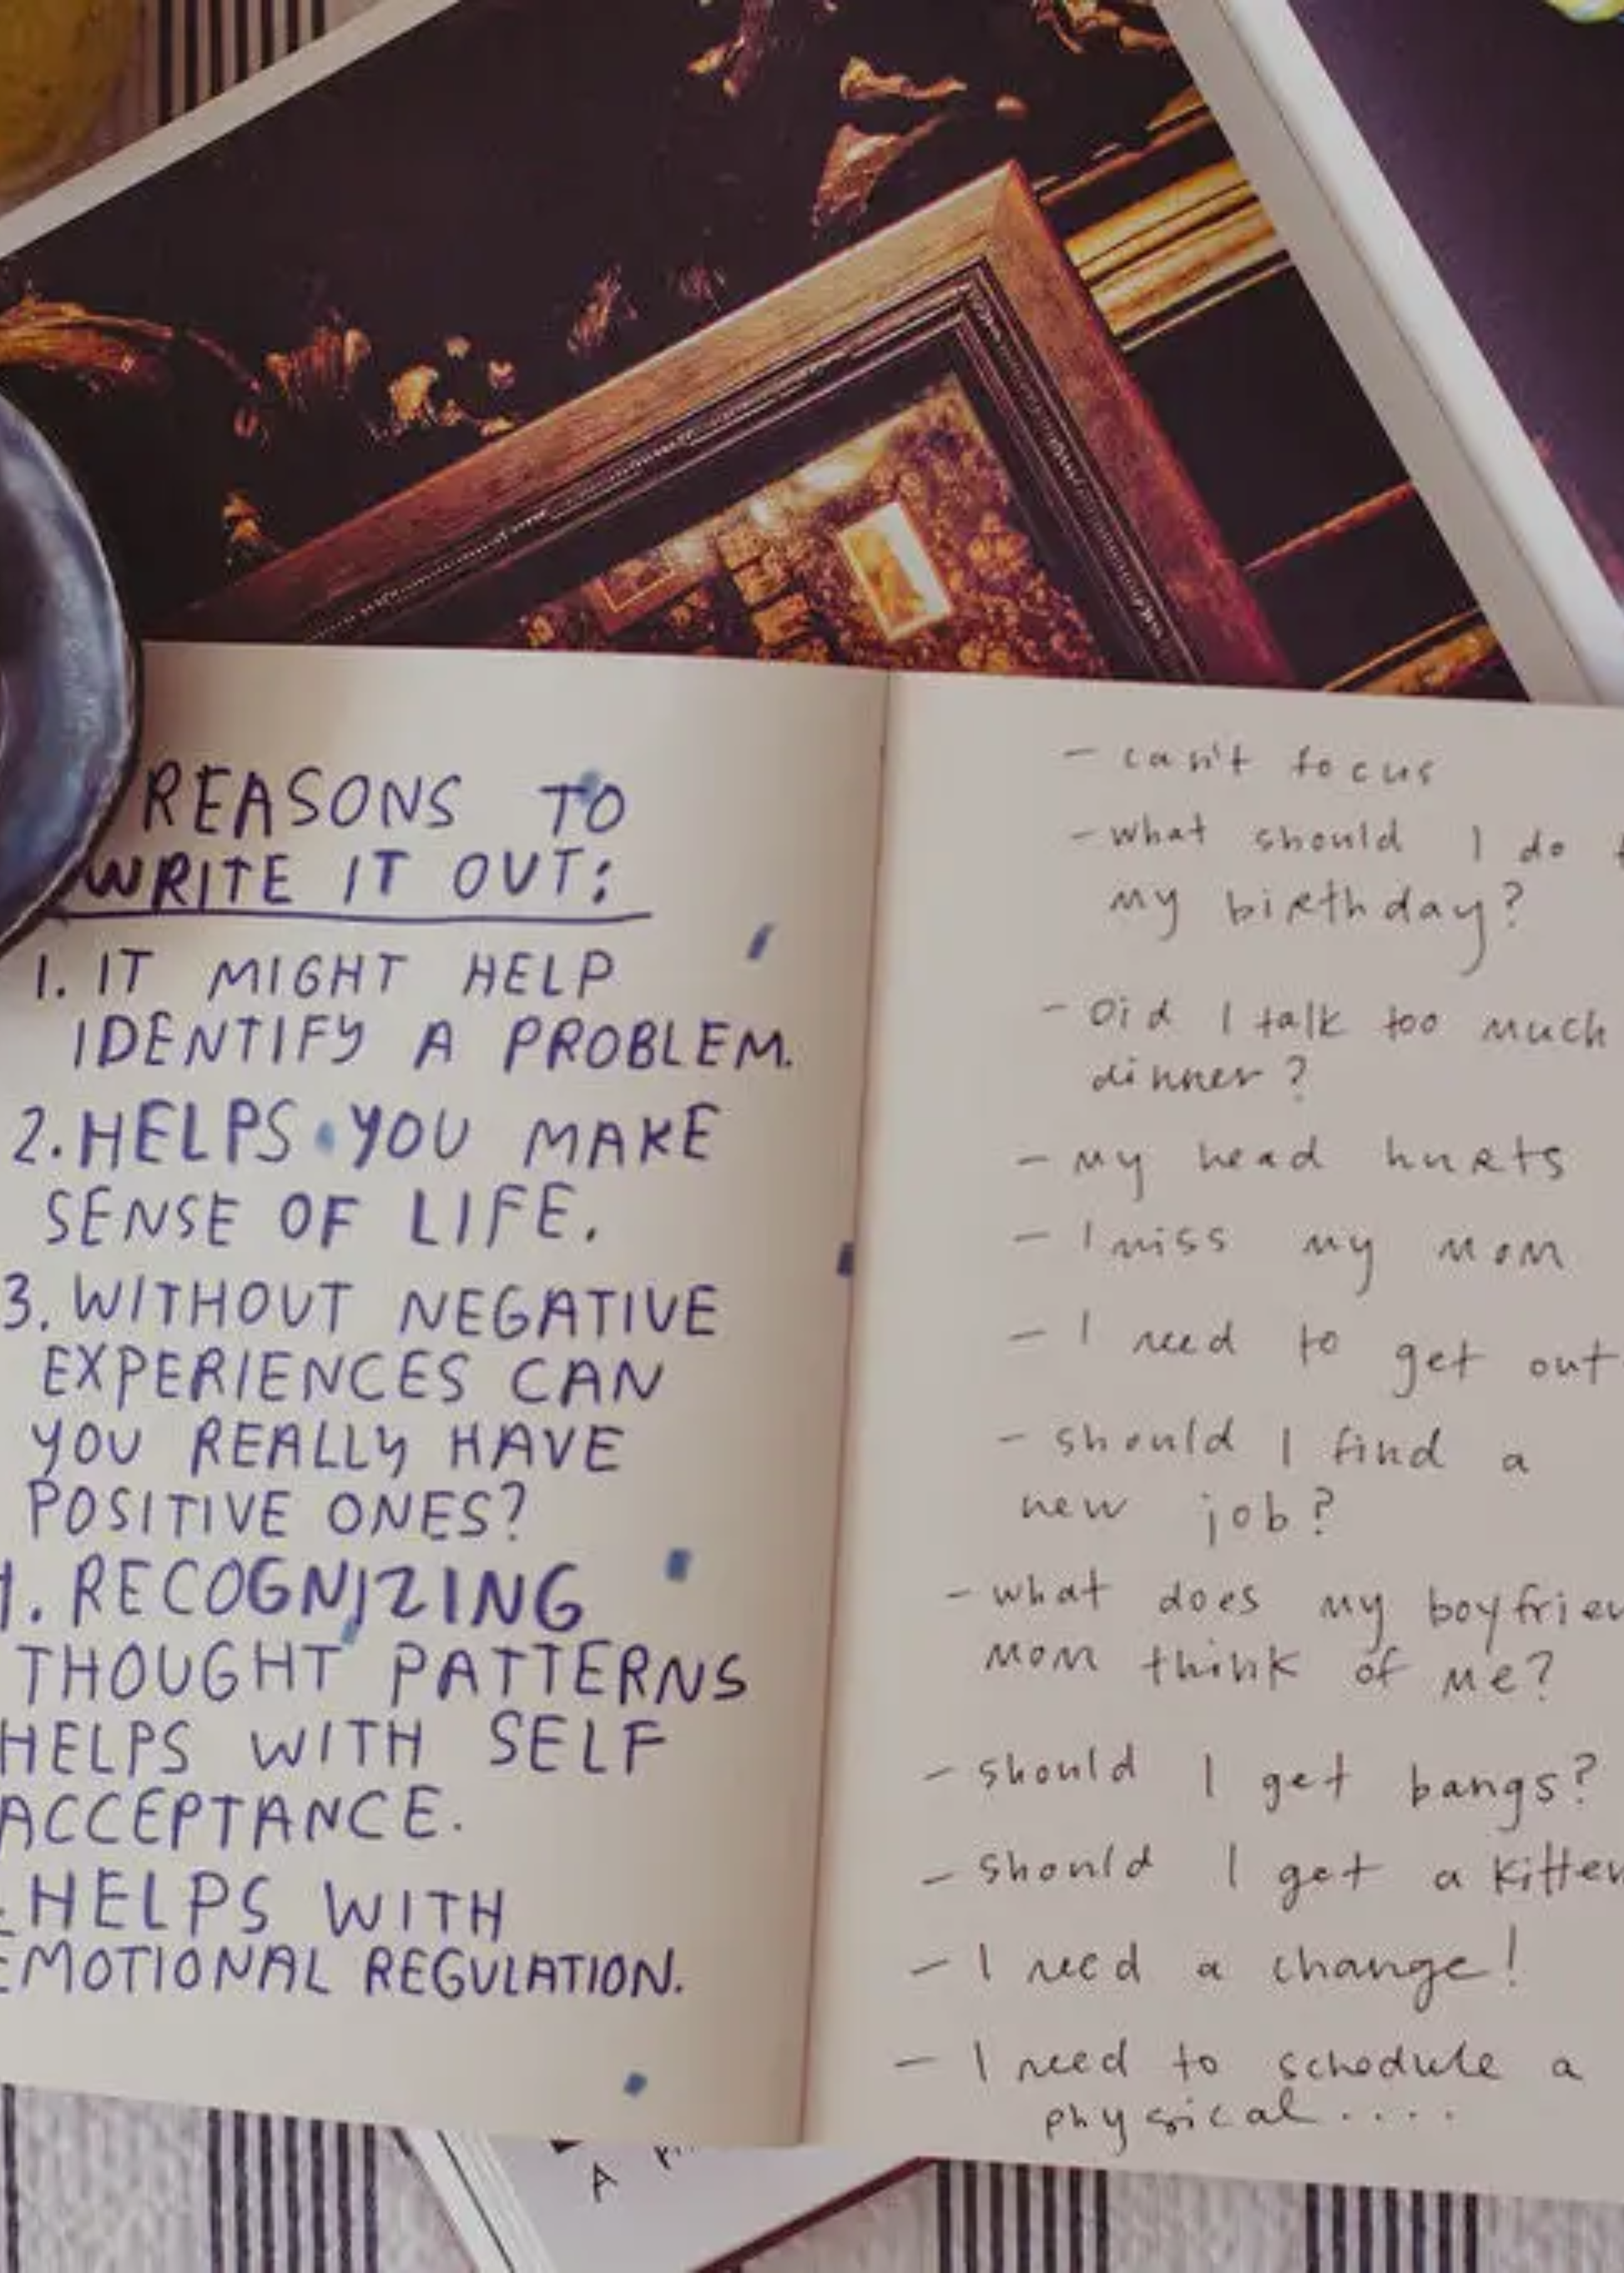 REASONS TO
WRITE IT OUT:
1. IT MIGHT HELP
IDENTIFY A PROBLEM.
2. HELPS YOU MAKE
SENSE OF LIFE.
3. WITHOUT NEGATIVE
EXPERIENCES CAN
YOU REALLY HAVE
POSITIVE ONES?
4. RECOGNIZING
THOUGHT PATTERNS
HELPS WITH SELF
ACCEPTANCE.
HELPS WITH
EMOTIONAL REGULATION.
- can't focus
- what should I do
my birthday?
- Did I talk too much
dinner?
- my head hurts
- I miss my mom
- I need to get out
- should I find a
new job?
- what does my
mom think of me?
- should I get bangs?
- should I get a kitten
- I need a change!
- I need to schedule a
physical....
A